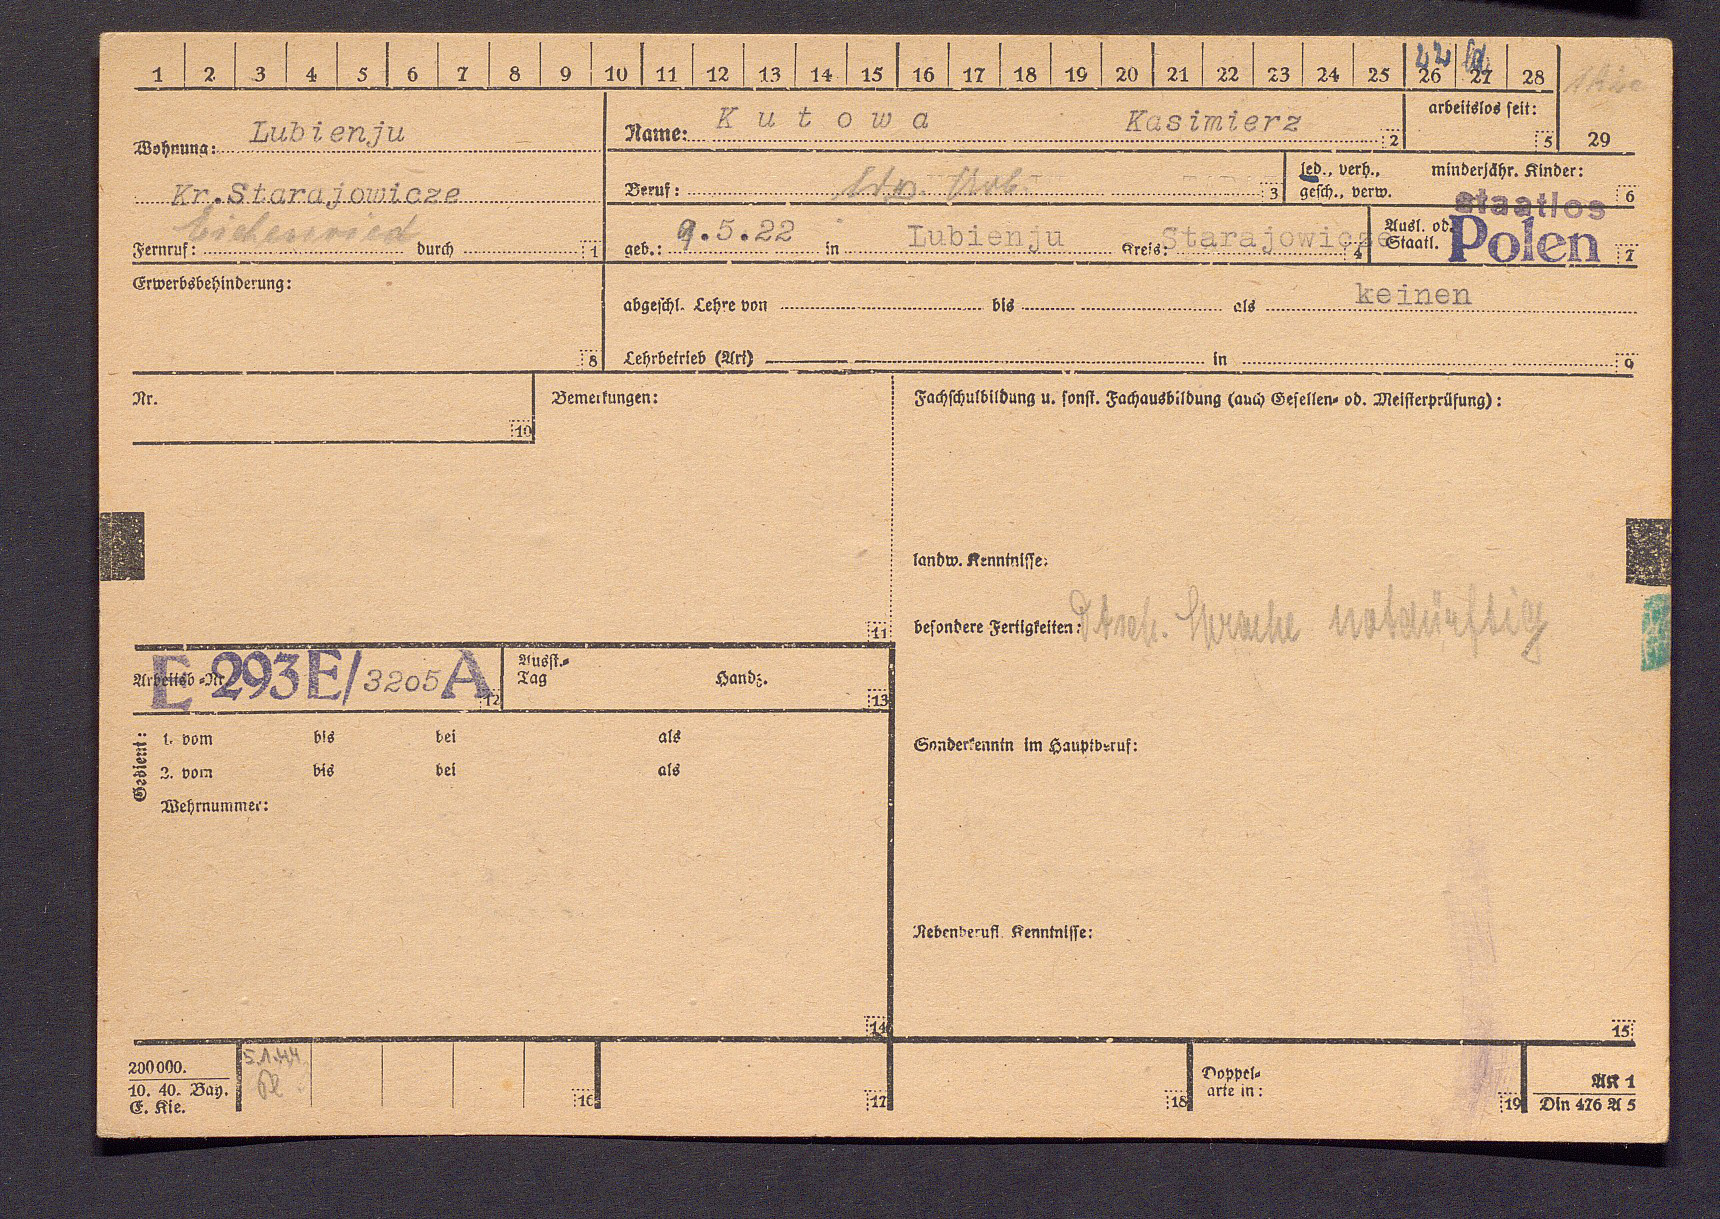 1 2 3 4 5 6 7 8 9 10 11 12 13 14 15 16 17 18 19 20 21 22 23 24 25 26 27 28
22
Wohnung: Lubienju
Kr.Starajowicze
Eichenried
Fernruf: durch 1
Name: Kutowa Kasimierz 2
arbeitslos seit: 5
29
Beruf: 3
led., verh., gesch., verw.
minderjähr. Kinder: 6
geb.: 9.5.22 in Lubienju Kreis: Starajowicze 4
Ausl. od. Staatl. staatlos Polen 7
Erwerbsbehinderung: 8
abgeschl. Lehre von bis als keinen
Lehrbetrieb (Art) in 9
Nr. 10
Bemerkungen: 11
Fachschulbildung u. sonst. Fachausbildung (auch Gesellen- od. Meisterprüfung):
landw. Kenntnisse:
besondere Fertigkeiten: Dtsch. Sprache notdürftig
Arbeitsb.-Nr. E 293E/3205 A 12
Ausst.-Tag Handz. 13
Gedient:
1. vom bis bei als
2. vom bis bei als
Wehrnummer:
14
Sonderkenntn im Hauptberuf:
Nebenberufl. Kenntnisse:
15
200000.
10. 40. Bay.
E. Kie.
5.1.44
16
17
18
Doppel-
arte in:
19
AK 1
Din 476 A 5